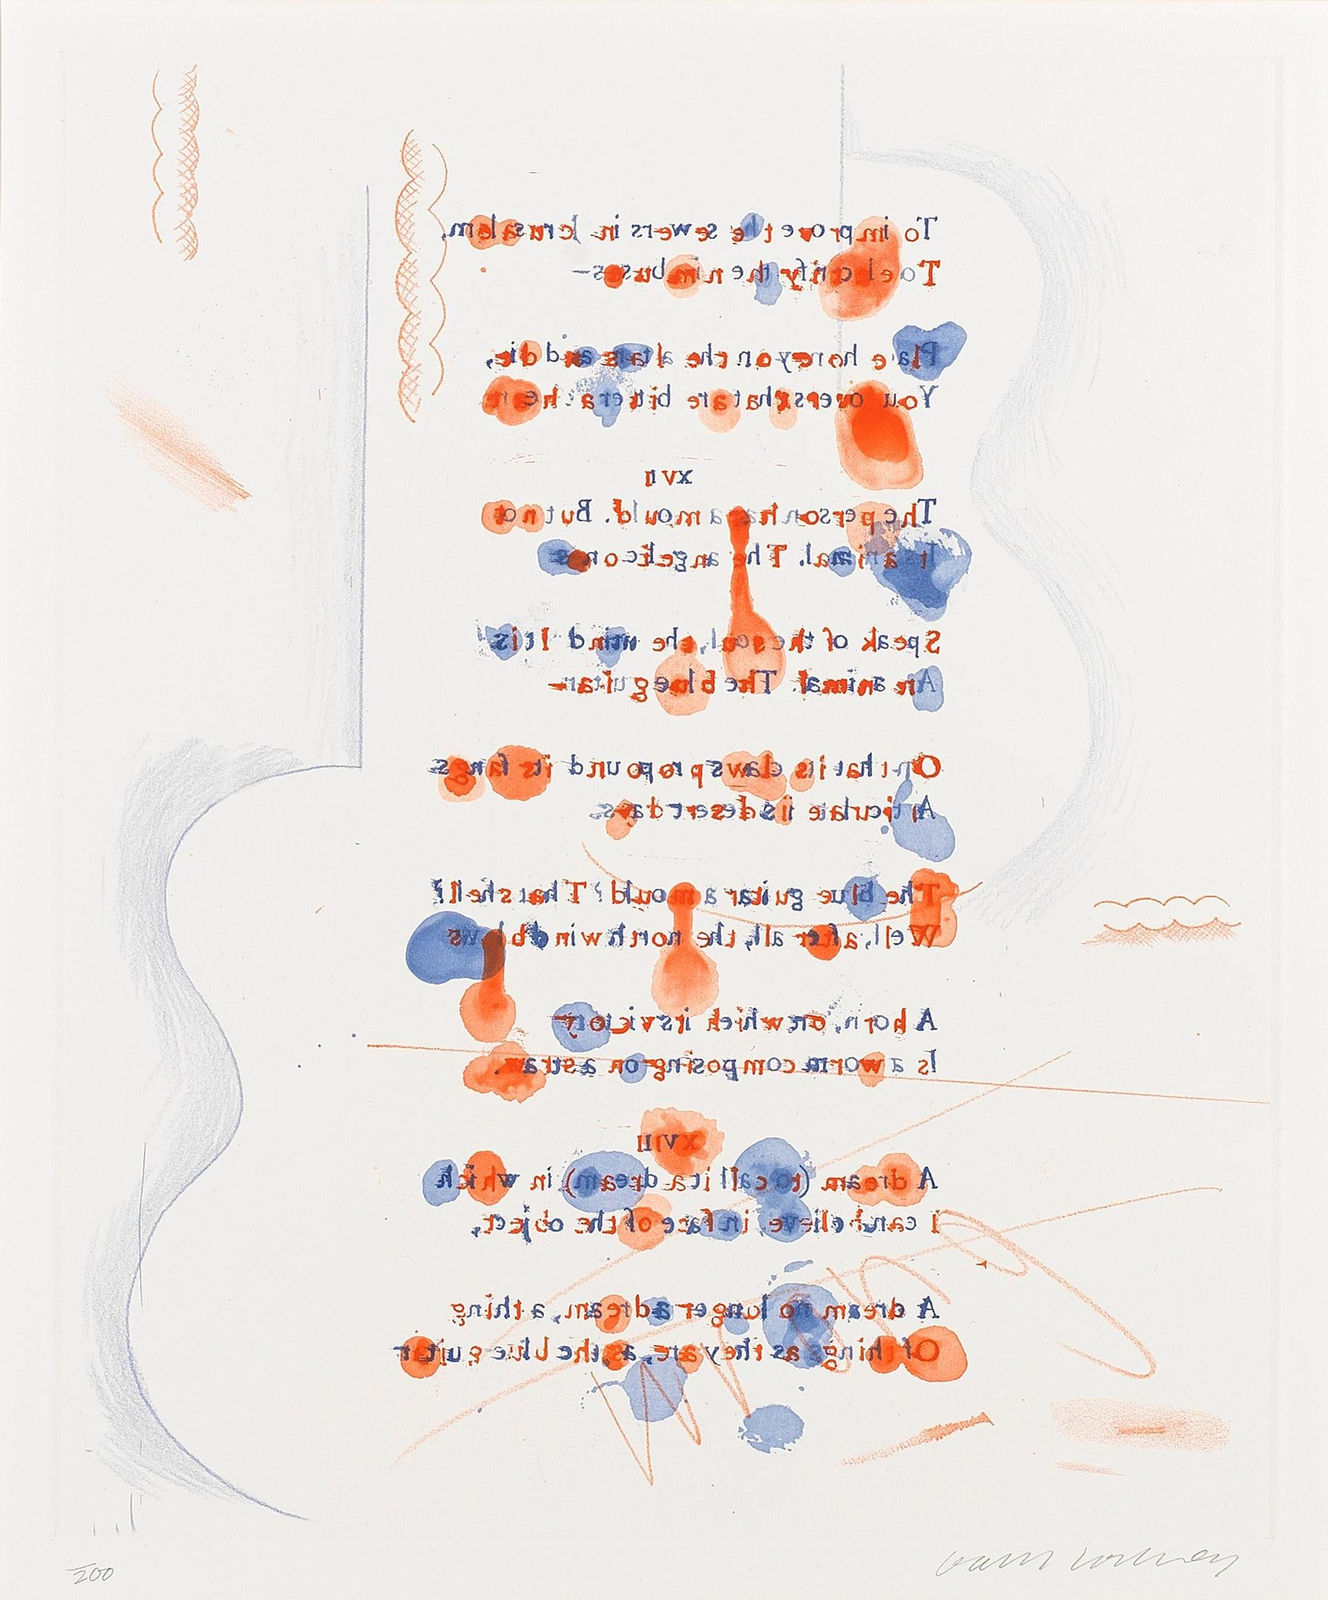 To improve the sewers in Jerusalem,
To electrify the nimbuses—
Place honey on the altars and die,
You lovers that are bitter at heart
XVII
The person has a mould. But not
Its animal. The angelic ones
Speak of the soul, the mind It is
An animal. The blue guitar—
On that its claws propound its fangs
Articulate its desert days.
The blue guitar a mould? That shell?
Well, after all, the north wind blows
A horn, on which its victory
Is a worm composing on a straw.
XVIII
A dream (to call it a dream) in which
I can believe, in face of the object,
A dream no longer a dream, a thing
Of things as they are, as the blue guitar
/200